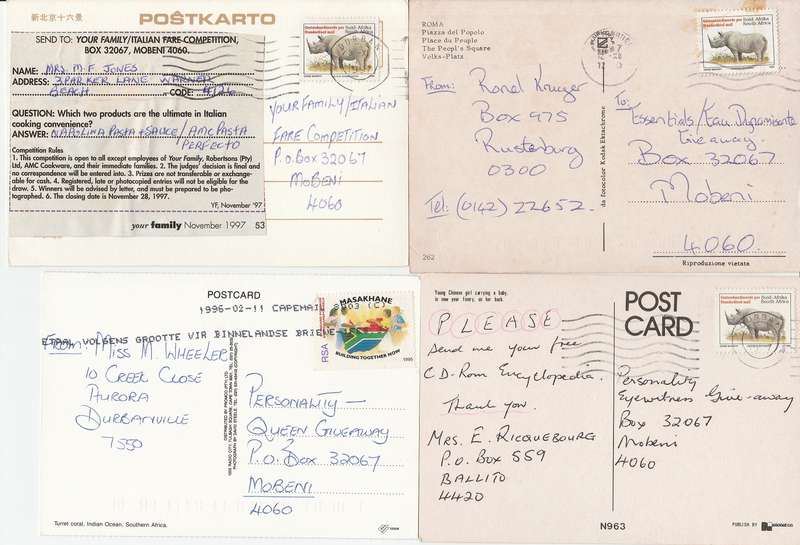 新北京十六景
POŜTKARTO
SEND TO: YOUR FAMILY/ITALIAN FARE COMPETITION,
BOX 32067, MOBENI 4060.
NAME: MRS. M.F. JONES
ADDRESS: 3 PARKER LANE WARNER
BEACH CODE: 4126
QUESTION: Which two products are the ultimate in Italian
cooking convenience?
ANSWER: NAPOLINA PASTA + SAUCE / AMC PASTA
PERFECTO
Competition Rules
1. This competition is open to all except employees of Your Family, Robertsons (Pty)
Ltd, AMC Cookware, and their immediate families. 2. The judges' decision is final and
no correspondence will be entered into. 3. Prizes are not transferable or exchange-
able for cash. 4. Registered, late or photocopied entries will not be eligible for the
draw. 5. Winners will be advised by letter, and must be prepared to be pho-
tographed. 6. The closing date is November 28, 1997.
YF, November '97
your family November 1997 53
Standardised mail South Africa
DURBAN
YOUR FAMILY/ITALIAN
FARE COMPETITION
P.O BOX 32067
MOBENI
4060
ROMA
Piazza del Popolo
Place du Peuple
The People's Square
Volks-Platz
From: Ronel Kruger
Box 975
Rustenburg
0300
Tel: (0142) 22652.
262
da fotocolor Kodak Ektachrome
Standardised mail South Africa
To:
Essentials/Eau Dynamisante
Give away
Box 32067
Mobeni
4060.
Riproduzione vietata
POSTCARD
1996-02-11 CAPEMAIL 8003 (C)
VOLGENS GROOTTE VIR BINNELANDSE BRIEWE
MASAKHANE
BUILDING TOGETHER NOW
RSA
1995
From: MISS M. WHEELER
10 CREEK CLOSE
AURORA
DURBANVILLE
7550
PERSONALITY —
QUEEN GIVEAWAY
P.O. BOX 32067
MOBENI
4060
Turret coral, Indian Ocean, Southern Africa.
Young Chinese girl carrying a baby,
POST
CARD
Standardised mail South Africa
PLEASE
Send me your free
CD-Rom Encyclopedia.
Thank you.
MRS. E. RICQUEBOURG
P.O. BOX 559
BALLITO
4420
Personality
Eyewitness Give-away
Box 32067
Mobeni
4060
N963
PUBLISH BY